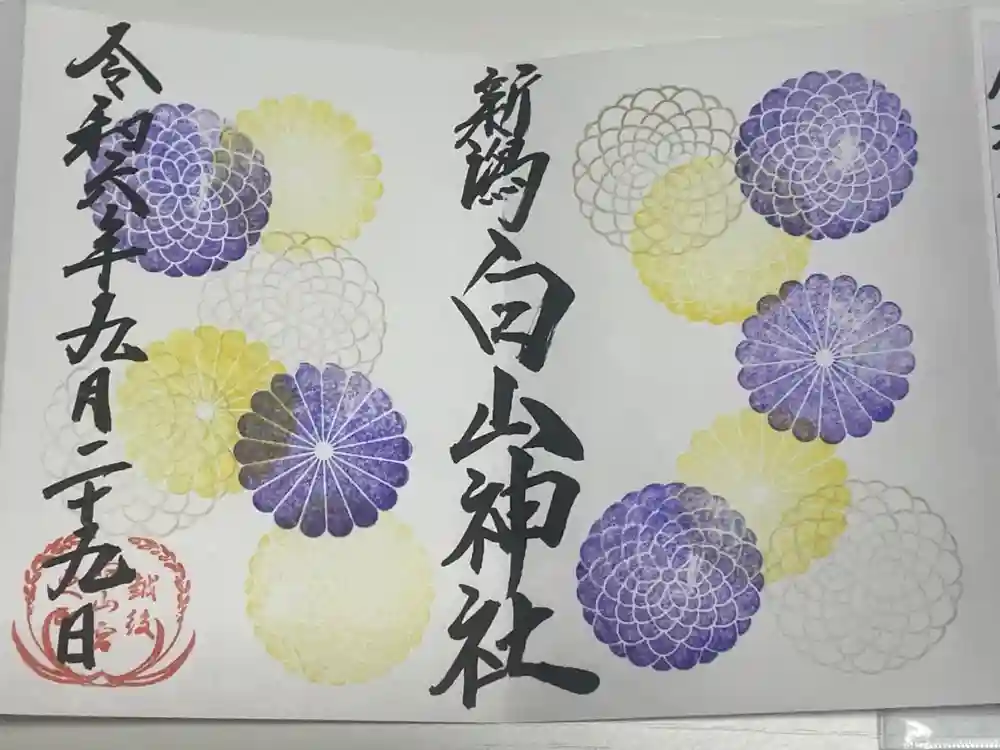 新潟白山神社
令和六年九月二十九日
越後
山宮